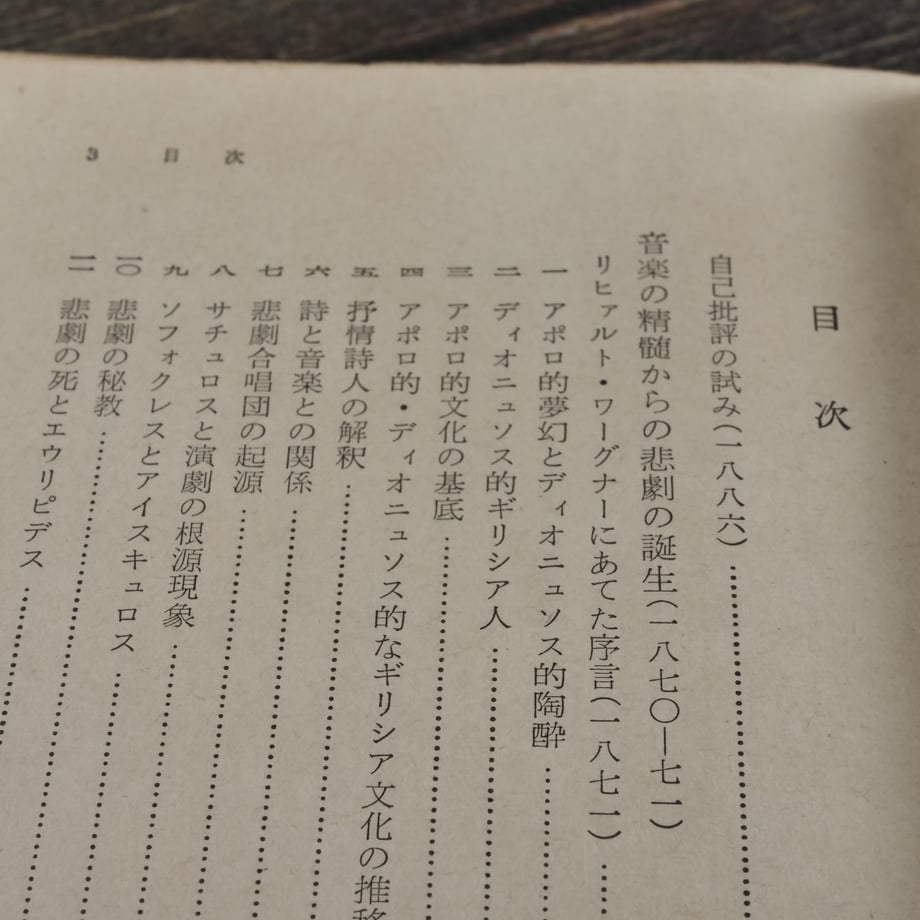 目次
自己批評の試み(一八八六)
音楽の精髄からの悲劇の誕生(一八七〇―七一)
リヒァルト・ワーグナーにあてた序言(一八七一)
一 アポロ的夢幻とディオニュソス的陶酔
二 ディオニュソス的ギリシア人
三 アポロ的文化の基底
四 アポロ的・ディオニュソス的なギリシア文化の推移
五 抒情詩人の解釈
六 詩と音楽との関係
七 悲劇合唱団の起源
八 サチュロスと演劇の根源現象
九 ソフォクレスとアイスキュロス
一〇 悲劇の秘教
一一 悲劇の死とエウリピデス
3 目次